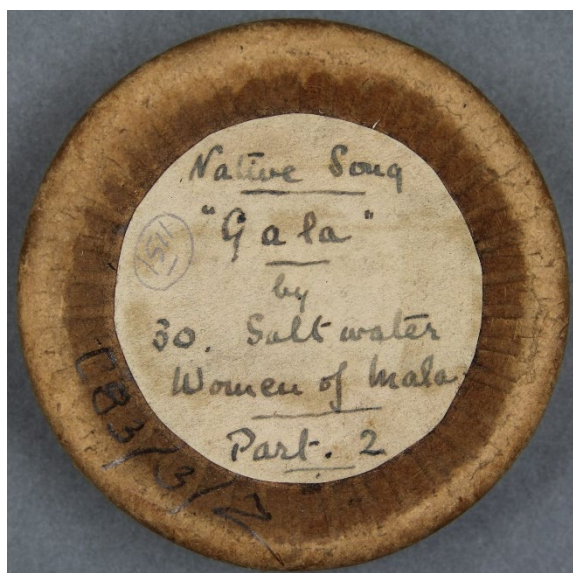 Native Song
"Gala"
1511
by
30. Saltwater
Women of Mala
Part. 2
C83/3/2